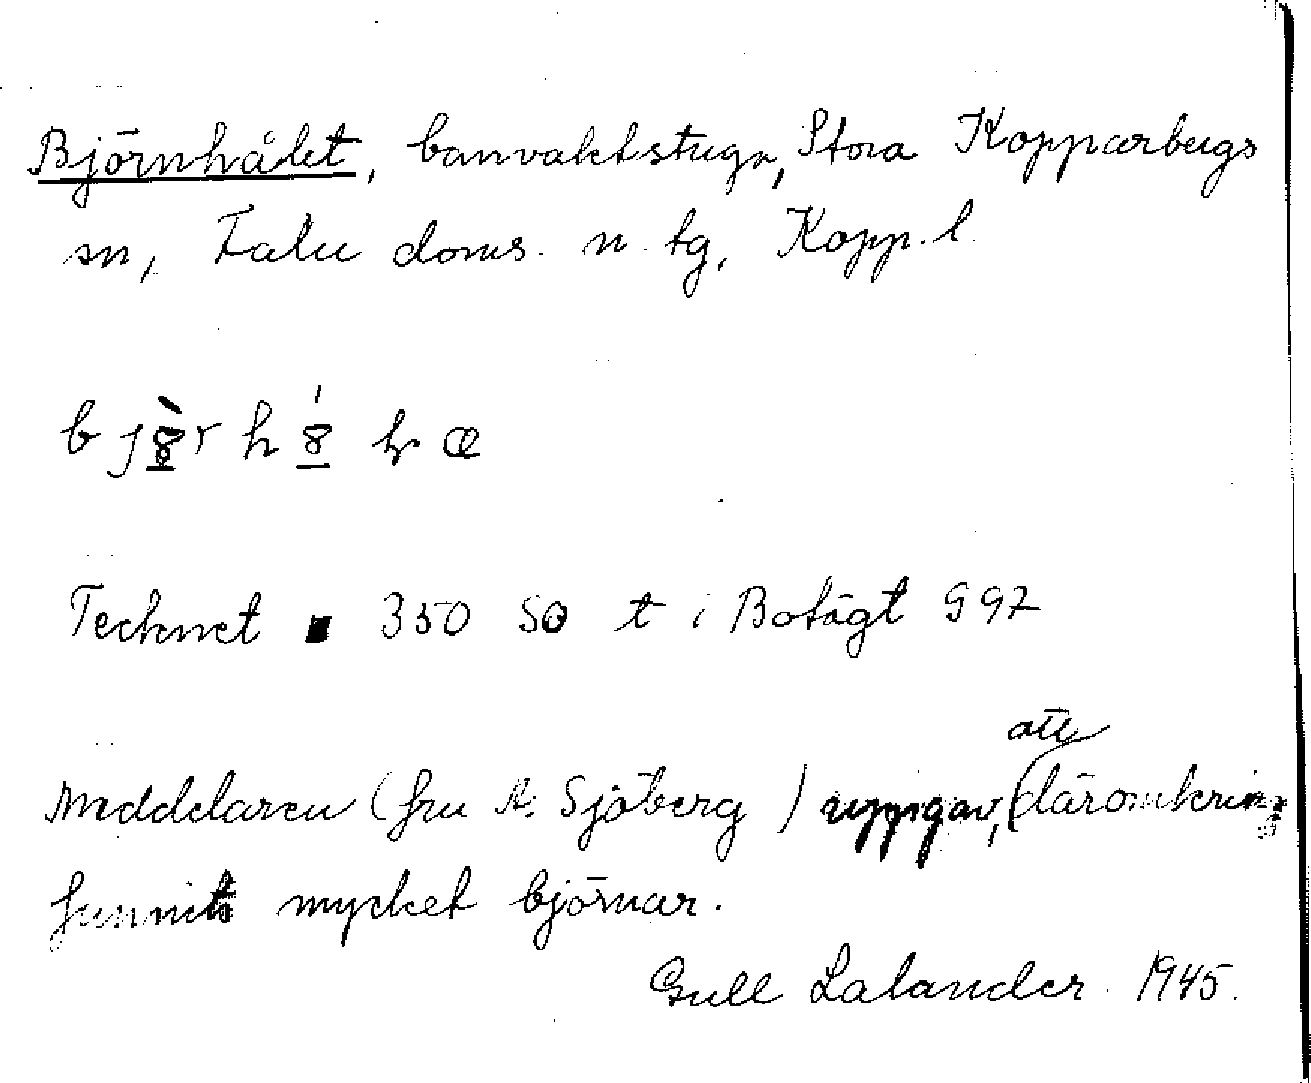 Björnhålet, banvaktstuga, Stora Kopparbergs
sn, Falu doms. n. tg, Kopp. l.
Tecknet 350 SO t i Botägt 997
att
Meddelaren (fru A. Sjöberg) uppgav, däromkring
funnits mycket björnar.
Gull Lalander 1945.